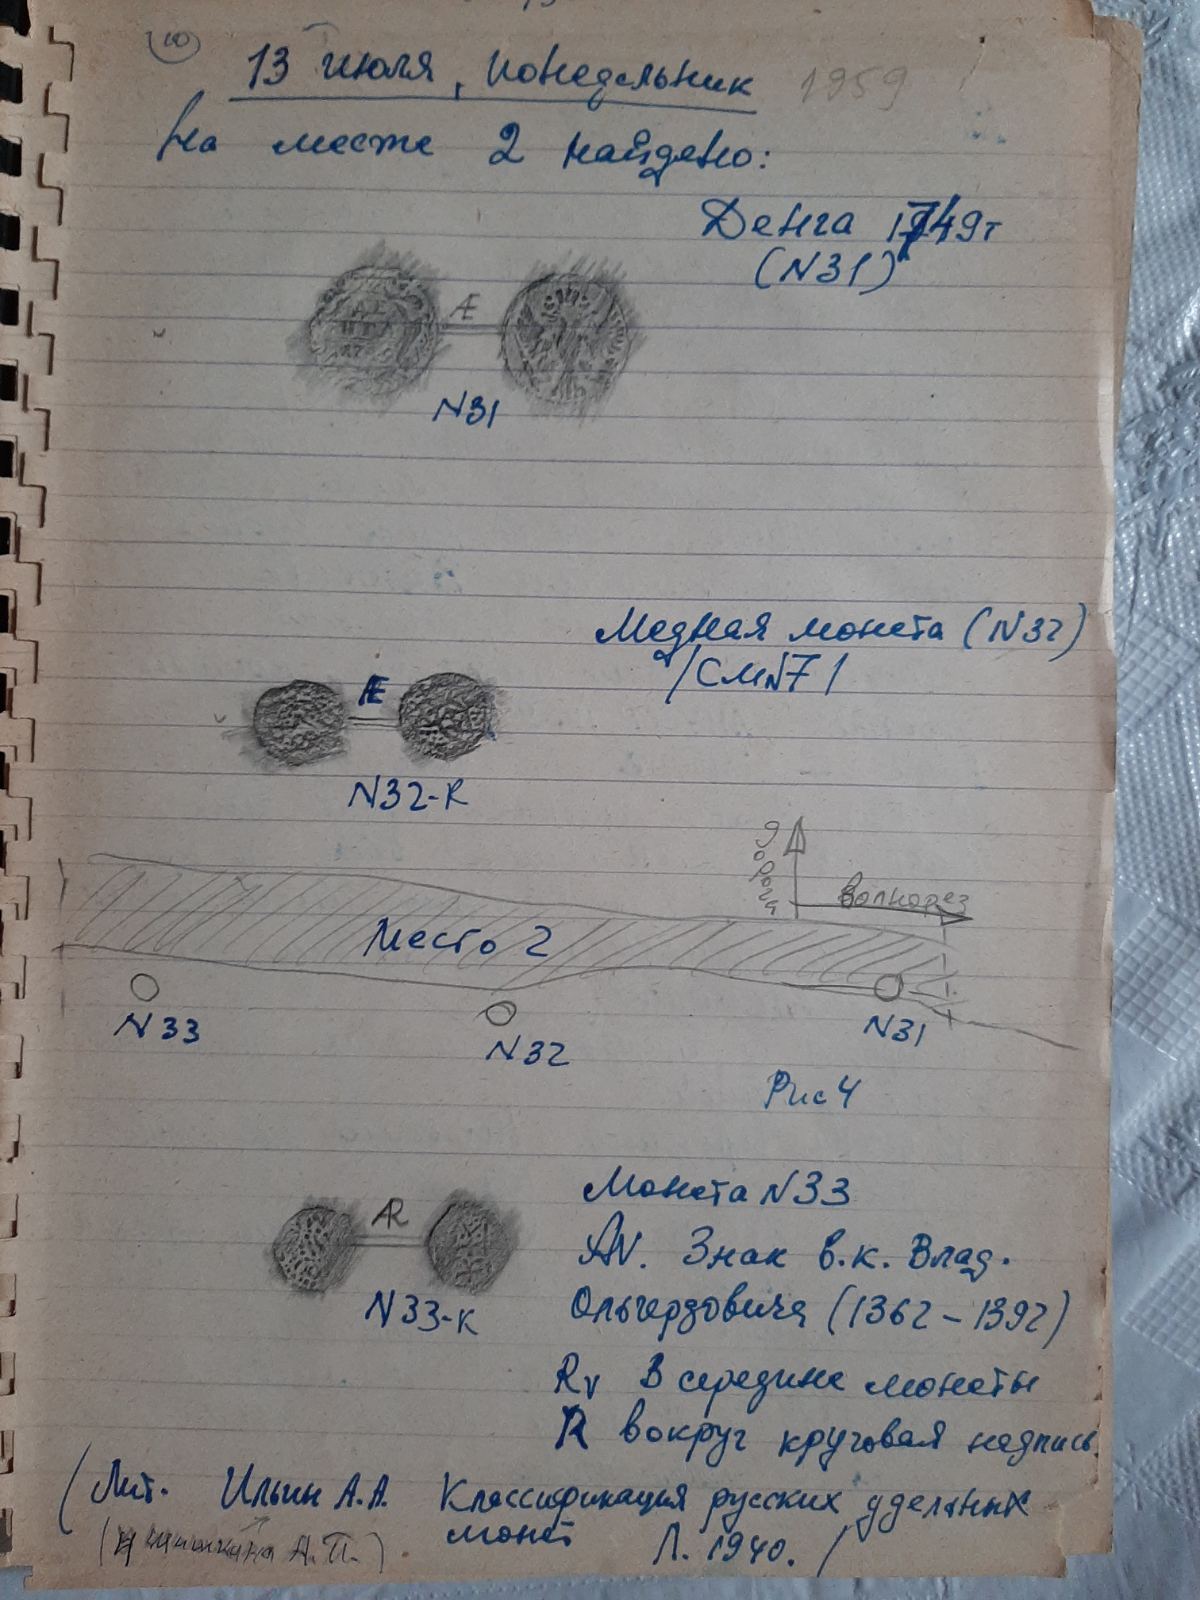 10
13 июля, понедельник 1959
На месте 2 найдено:
Денга 1749г
(N31)
Æ
N31
Медная монета (N32)
/СмN71
Æ
N32-R
дорога
волнорез
Место 2
N33
N32
N31
Рис 4
Монета N33
AR
AV. Знак в.к. Влад.
N33-к
Ольгердовича (1362-1392)
Rv В середине монеты
R вокруг круговая надпись.
(Лит. Ильин А.А. Классификация русских удельных
монет Л. 1940. /
А.П.)